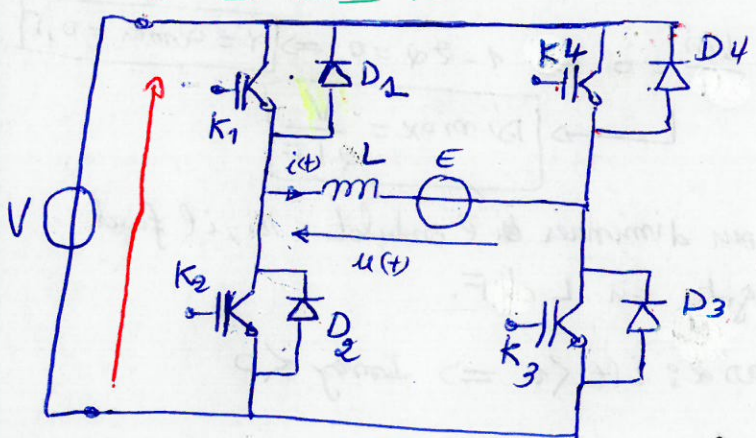 K1
D1
K4
D4
V
i(t)
L
E
u(t)
K2
D2
K3
D3